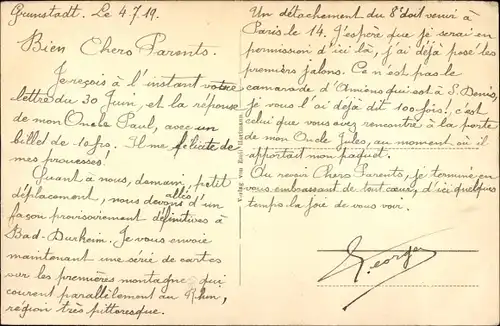 Grunstadt. Le 4.7.19.
Bien Chers Parents.
Je reçois à l'instant votre
lettre du 30 Juin, et la réponse
de mon Oncle Paul, avec un
billet de 10 frs. Il me félicite de
mes prouesses!
Quant à nous, demain, petit
déplacement, nous devons allés d'un
façon provisoirement définitives à
Bad-Durheim. Je vous envoie
maintenant une série de cartes
sur les premières montagnes qui
courent parallèlement au Rhin,
région très pittoresque.
Un détachement du 8e doit venir à
Paris le 14. J'espère que je serai en
permission d'ici là, j'ai déjà posé les
premiers jalons. Ce n'est pas le
camarade d'Amiens qui est à S. Denis,
je vous l'ai déjà dit 100 fois! c'est
celui que vous avez rencontré à la porte
de mon Oncle Jules, au moment où il
apportait mon paquet.
Au revoir Chers Parents, je termine en
vous embrassant de tout cœur, d'ici quelques
temps la joie de vous voir.
Georges
Verlag von Emil Hartmann